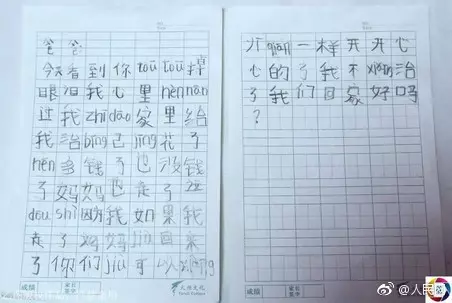 爸爸:
今天看到你 tōu tōu 掉
眼泪我心里 hěn nán
过我 zhī dào 家里给
我治 bìng 已 jīng 花了
hěn 多钱了也没钱
了妈妈也走了这
dōu shì 因为我如果我
走了妈妈 jiù 回来
了你们 jiù 可以
开 qián 一样开开心
心的了我不 xiǎng 治
了我们回家好吗
?
成绩
家长签字
成绩
家长签字
@人民